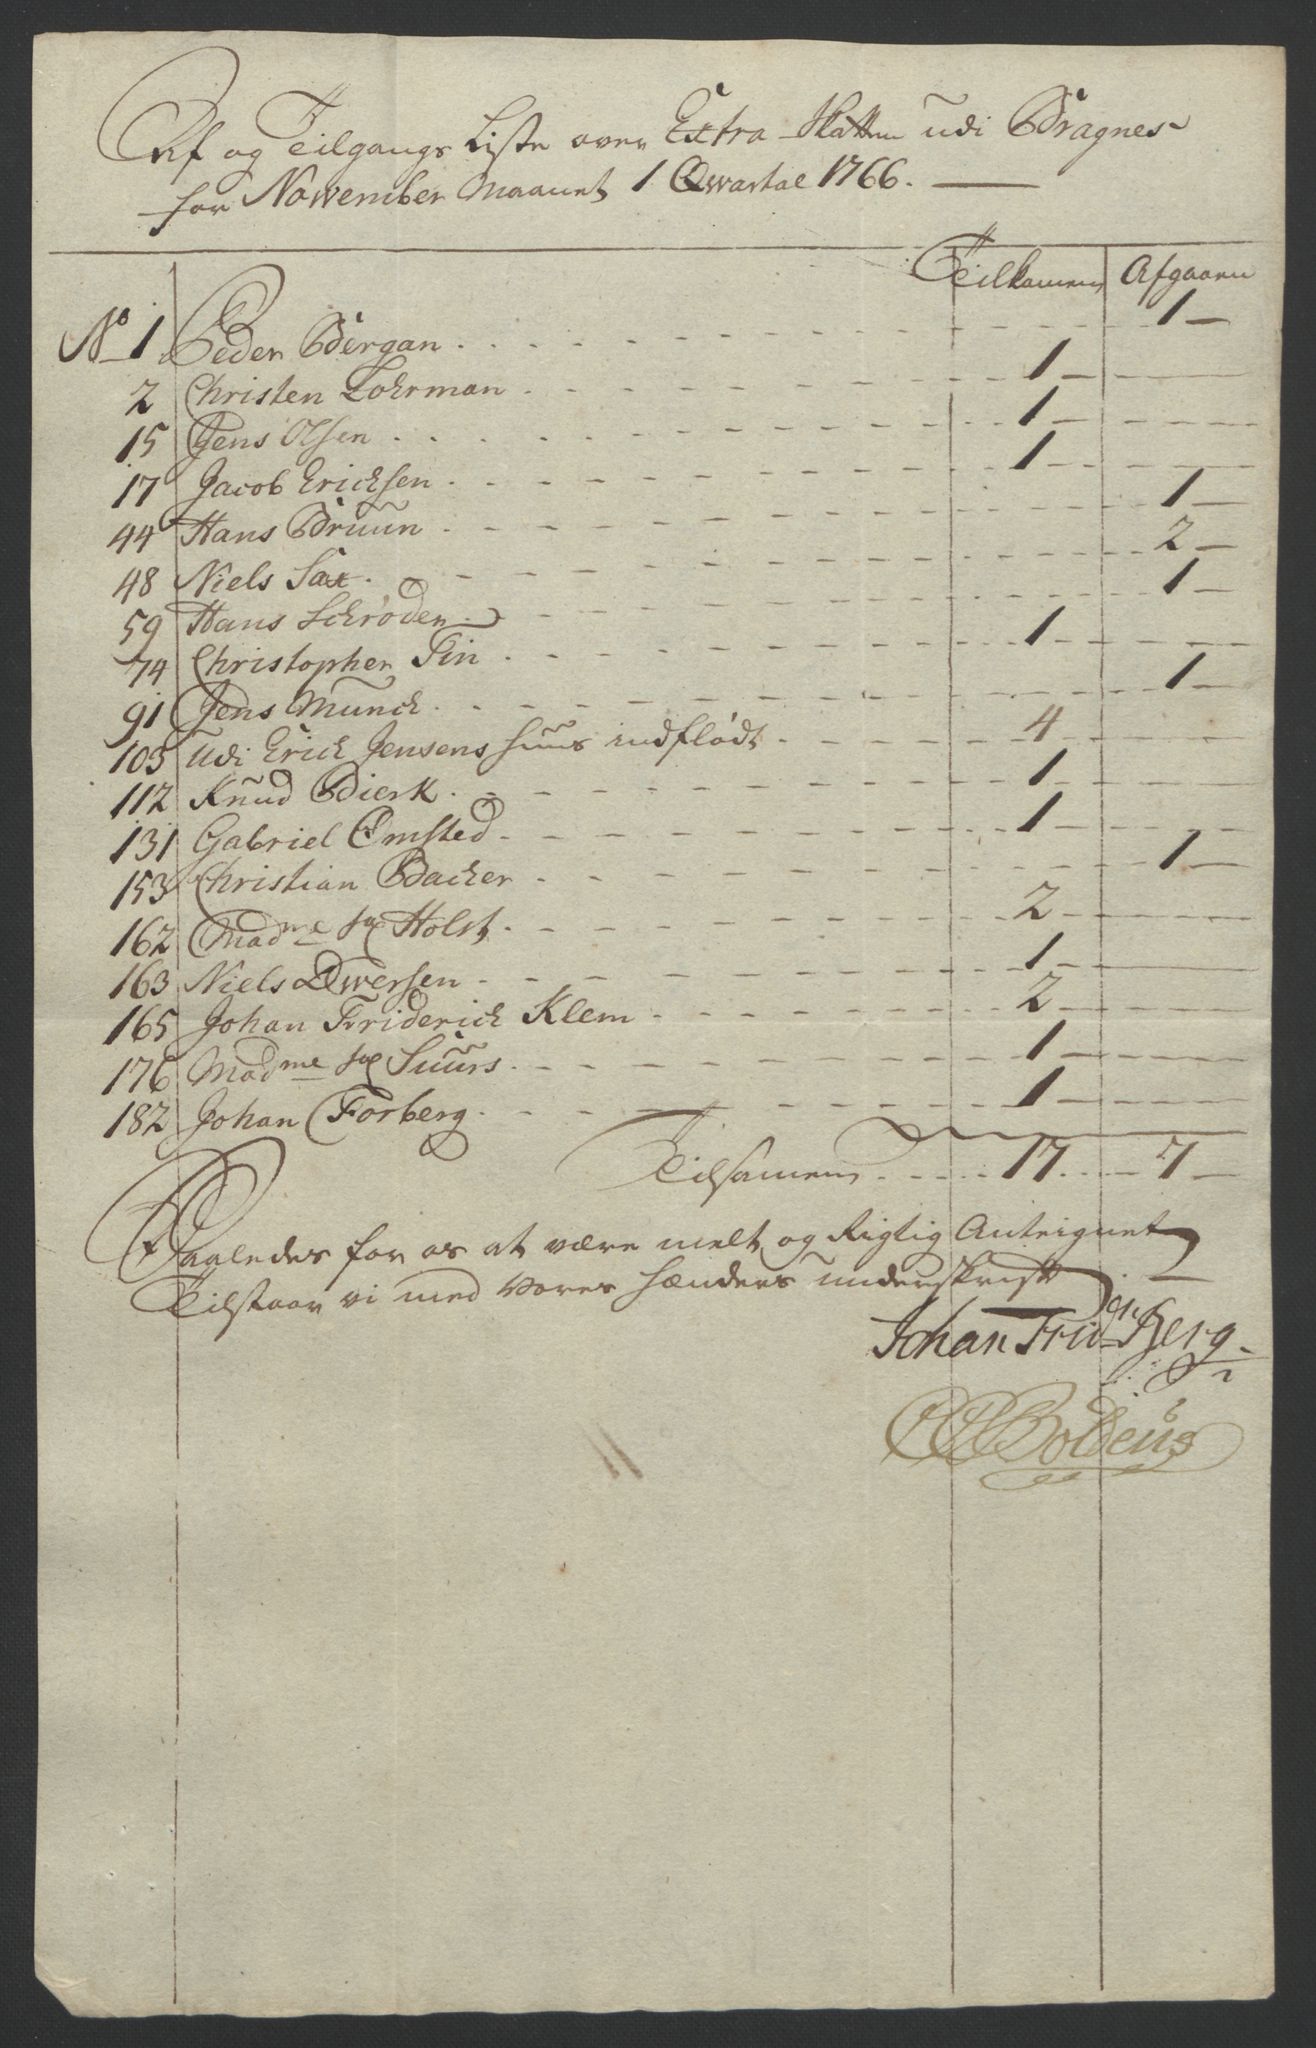 Af og Tilgangs Liste over Extra Skatten udi Bragnes
for November Maanet 1 Qvartal 1766.
Tilkamen Afgaaen
No 1 Peder Bergan 1
2 Christen Lohrman 1
15 Jens Olsen 1
17 Jacob Ericksen 1
44 Hans Bruun 1
48 Niels Sax 2
59 Hans Schrøder 1
74 Christopher Fin 1
91 Jens Munck 1
103 Udi Erick Jensens huus indflødt 4
112 Knud Bierk 1
131 Gabriel Omsted 1
153 Christian Backer 1
162 Madme sal Holst 2
163 Niels Qwersen 1
165 Johan Friderick Klem 2
176 Madme sal Suurs 1
182 Johan Forberg 1
Tilsamen 17 7
Saaledes for os at være melt og Rigtig Anteignet
Tilstaar vi med vores hænders underskrift
Johan Fridr Berg
Boldeus